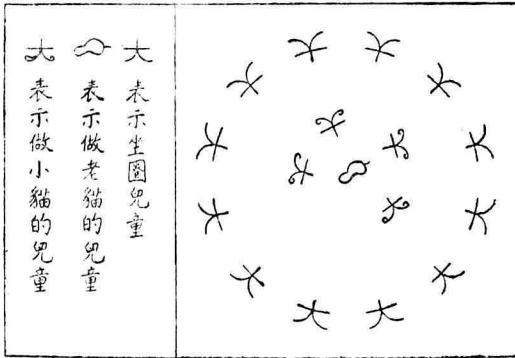 表示坐圈兒童
表示做老貓的兒童
表示做小貓的兒童